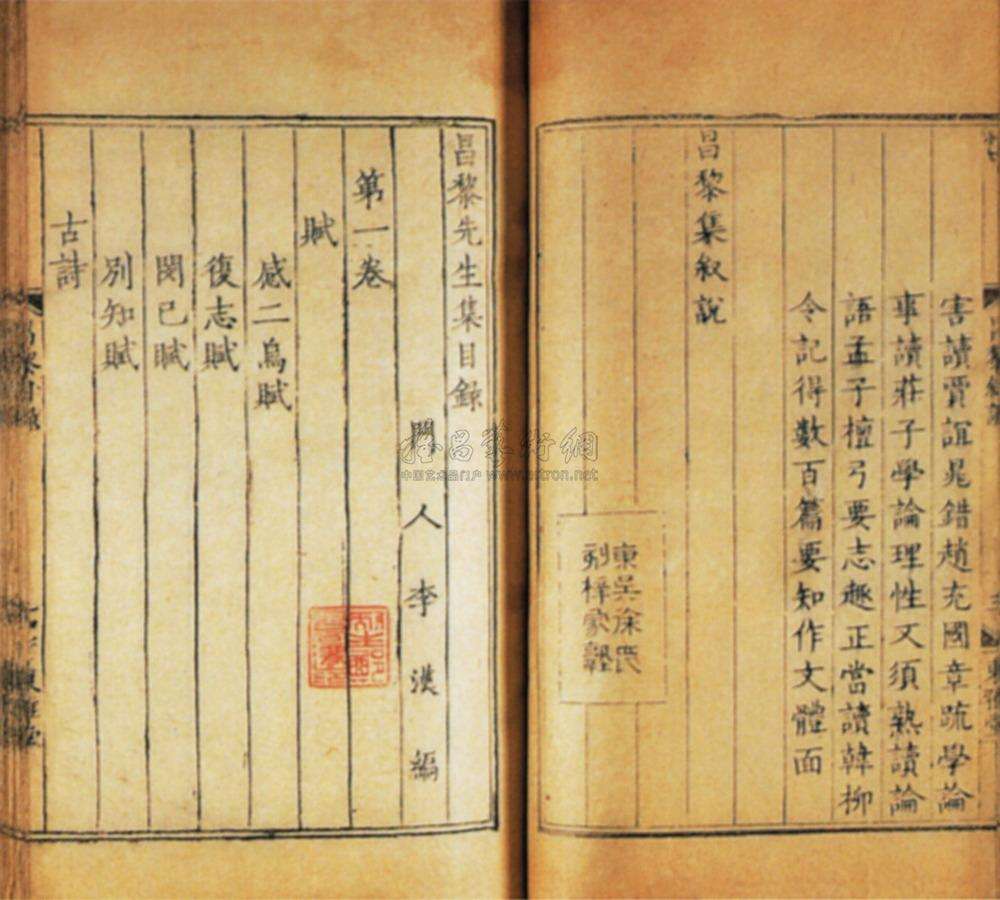 害讀賈誼晁錯趙充國章疏學論
事讀莊子學論理性又須熟讀論
語孟子檀弓要志趣正當讀韓柳
令記得數百篇要知作文體面
昌黎集叙說
東吳徐氏
刻梓家塾
昌黎先生集目錄
門人李漢編
第一卷
賦
感二鳥賦
復志賦
閔己賦
別知賦
古詩
中国艺术品门户 www.artron.net